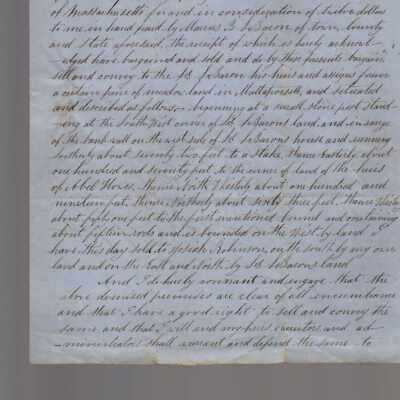 of Massachusetts for and in consideration of twelve dollars
to me in hand paid by B. LeBaron of town, County
and State aforesaid, the receipt of which is hereby acknowl-
-edged have bargained and sold and do by these presents bargain,
sell and convey to the sd LeBaron his heirs and assigns forever
a certain piece of meadow land in Mattapoisett, and situated
and described as follows, beginning at a small stone post stand-
-ing at the South West corner of sd LeBarons land and in range
of the bank wall on the west side of sd LeBarons house and running
Southerly about seventy two feet to a stake, thence Easterly about
one hundred and seventy feet to the corner of land of the heirs
of Abel thence North Westerly about one hundred and
nineteen feet, thence Northerly about three feet, thence
about fifty one feet to the first mentioned bound and containing
about fifteen rods and is bounded on the West by land I
have this day sold to Joseph Robinson, on the south by my own
land and on the East and North by sd LeBarons land
And I do hereby covenant and engage that the
above demised premises are clear of all encumbrances
and that I have a good right to sell and convey the
same and that I will and my heirs executors and ad-
-ministrators shall warrant and defend the same to